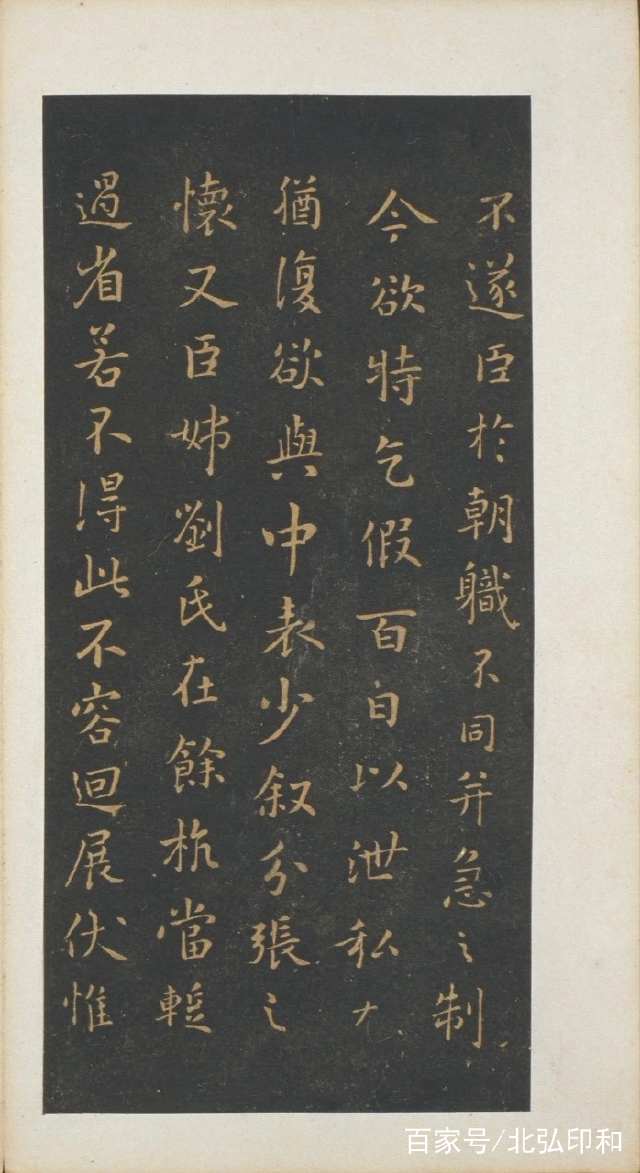 不遂臣於朝軄不同并急之制
今欲特乞假百日以泄私
猶復欲與中表少叙分張之
懷又臣姊劉氏在餘杭當
過省若不得此不容迴展伏惟
百家号/北弘印和